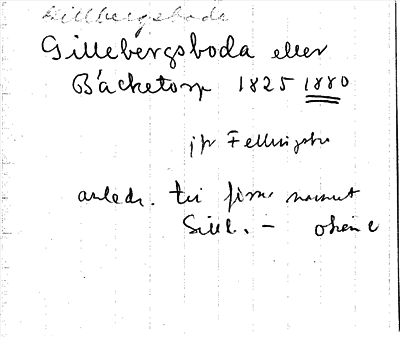 Lillbergsboda
Gillebergsboda eller
Bäcketorp 1825 1880
jfr Fellingsbro
anledn. till
Sill. –